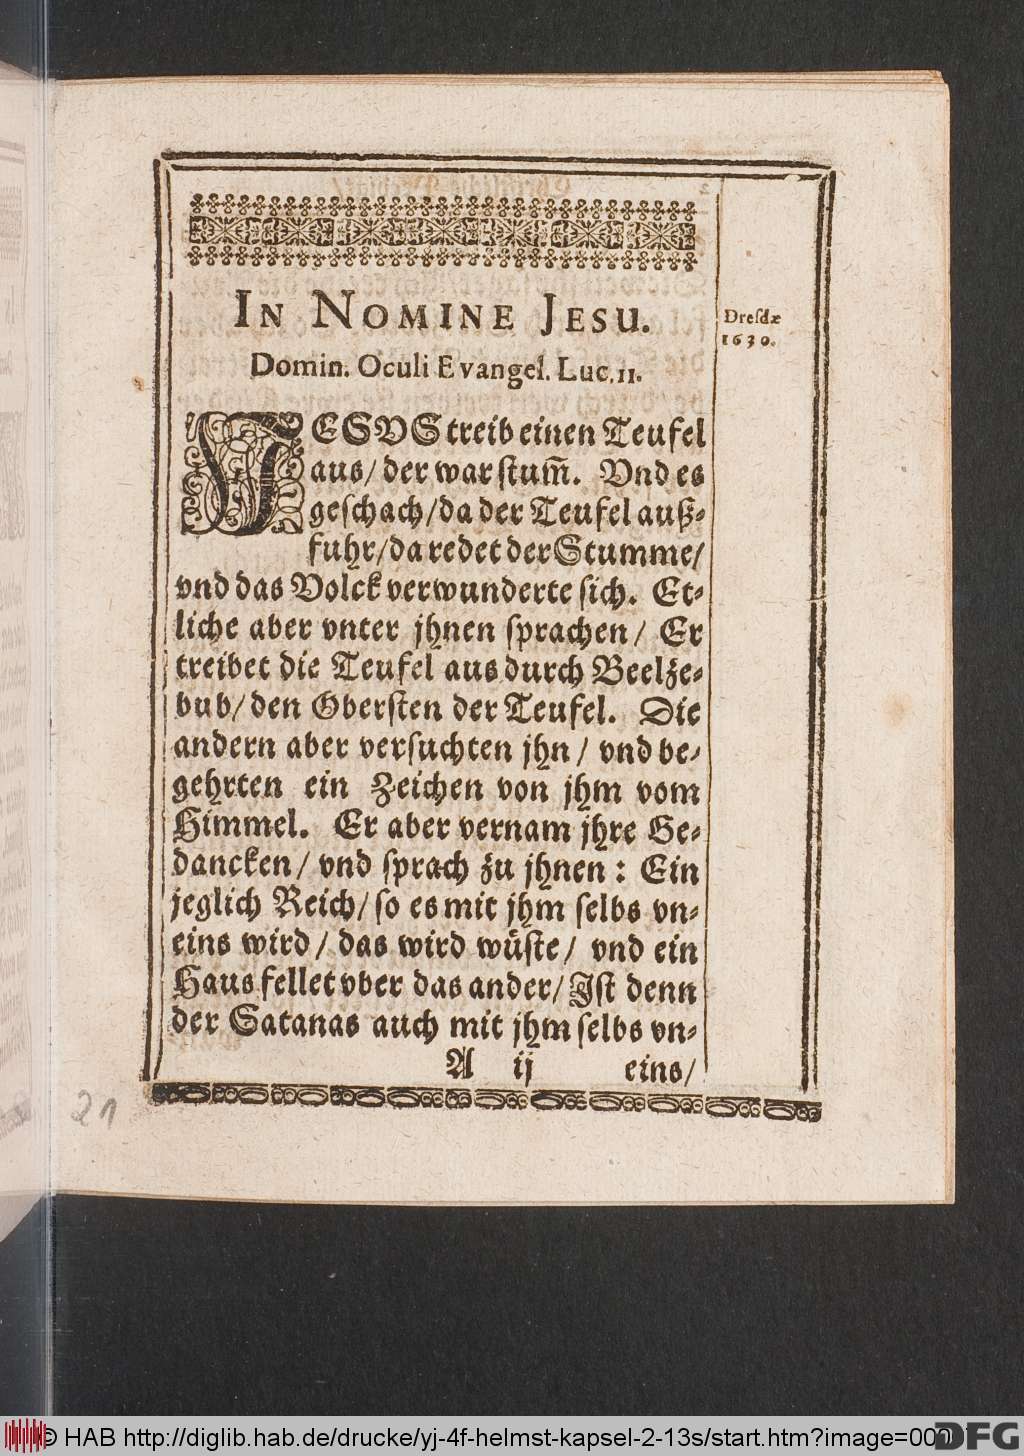 IN NOMINE JESU.
Dresdæ
1630.
Domin. Oculi Evangel. Luc. 11.
JESVS treib einen Teufel
aus/ der war stum̃. Vnd es
geschach/ da der Teufel auß⸗
fuhr/ da redet der Stumme/
vnd das Volck verwunderte sich. Et⸗
liche aber vnter jhnen sprachen/ Er
treibet die Teufel aus durch Beelze⸗
bub/ den Obersten der Teufel. Die
andern aber versuchten jhn/ vnd be⸗
gehrten ein Zeichen von jhm vom
Himmel. Er aber vernam jhre Ge⸗
dancken/ vnd sprach zu jhnen: Ein
jeglich Reich/ so es mit jhm selbs vn⸗
eins wird/ das wird wüste/ vnd ein
Haus fellet vber das ander/ Ist denn
der Satanas auch mit jhm selbs vn⸗
A ij eins/
21
© HAB http://diglib.hab.de/drucke/yj-4f-helmst-kapsel-2-13s/start.htm?image=000
DFG